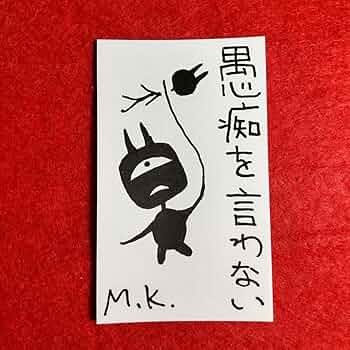 愚痴を言わない
M.K.